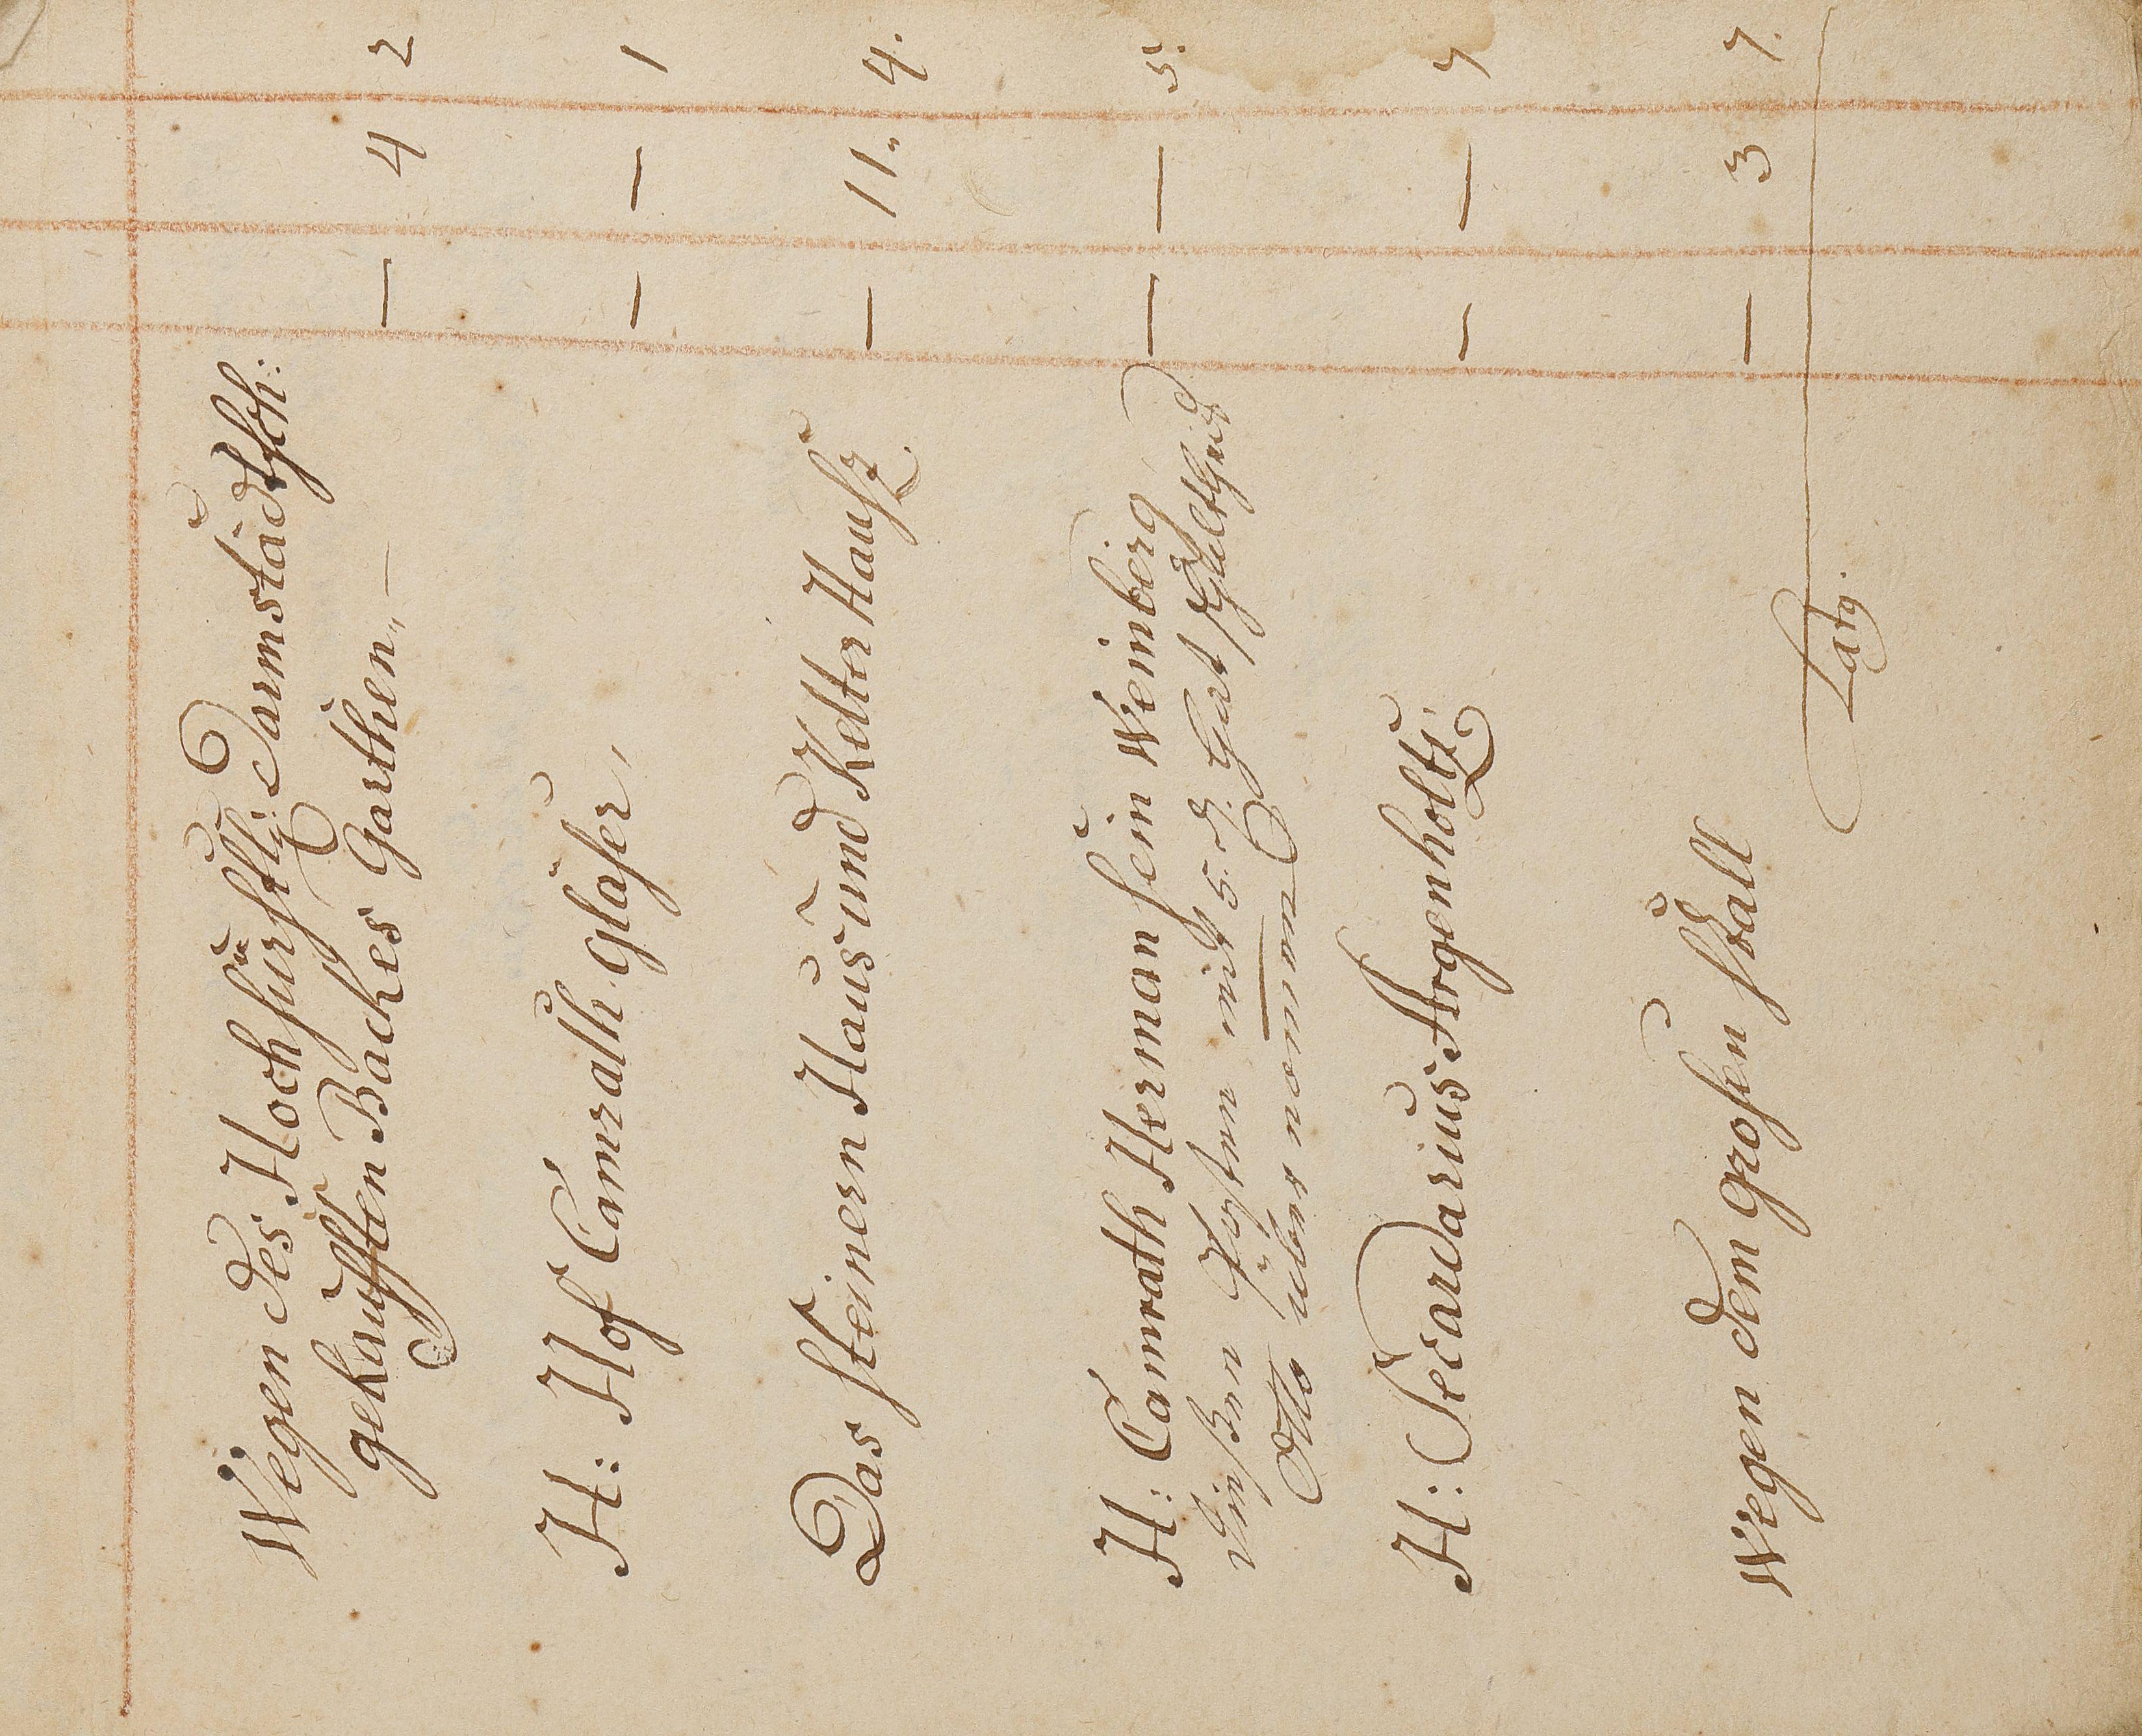 Wegen des Hochfürstl: Darmstädtsch:
gekaufften Backes Garthen,, — — 4 2
H: Hof Camrath Gläser, — — 1
Das Steinern Haus und Kelter Hausz — 11,, 4.
H: Camrath Herman sein Weinberg — — 5.
diesen Posten mit 5 Gut
Otto übernommen
H: Secardarius Argenholtz — — 7
Wegen dem grosen Stall — 3 7.
Latg.